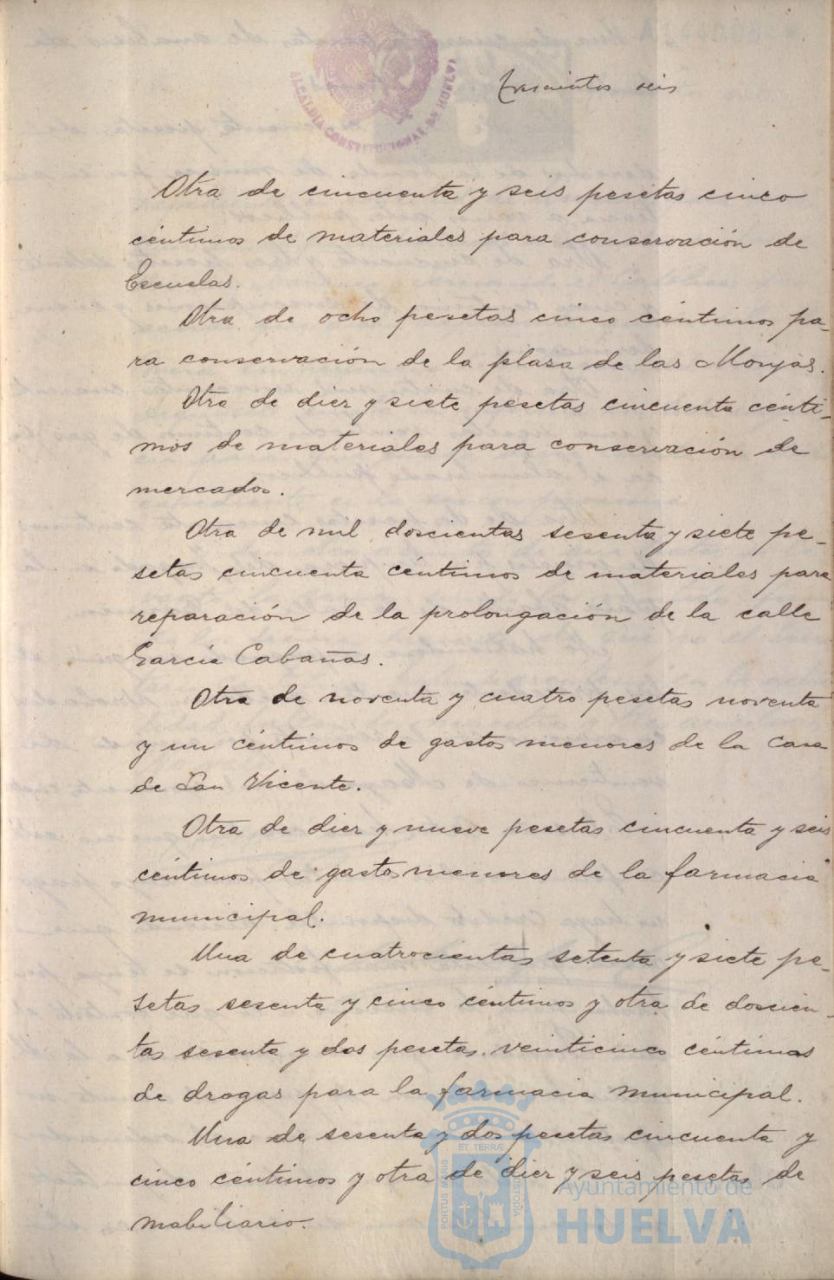 ALCALDIA CONSTITUCIONAL DE HUELVA
Trescientos seis
Otra de cincuenta y seis pesetas cinco
céntimos de materiales para conservación de
Escuelas.
Otra de ocho pesetas cinco céntimos pa-
ra conservación de la plasa de las Monjas.
Otra de diez y siete pesetas cincuenta cénti-
mos de materiales para conservación de
mercados.
Otra de mil doscientas sesenta y siete pe-
setas cincuenta céntimos de materiales para
reparación de la prolongación de la calle
García Cabañas.
Otra de noventa y cuatro pesetas noventa
y un céntimos de gastos menores de la casa
de San Vicente.
Otra de diez y nueve pesetas cincuenta y seis
céntimos de gastos menores de la farmacia
municipal.
Una de cuatrocientas setenta y siete pe-
setas sesenta y cinco céntimos y otra de doscien-
tas sesenta y dos pesetas veinticinco céntimos
de drogas para la farmacia municipal.
Una de sesenta y dos pesetas cincuenta y
cinco céntimos y otra de diez y seis pesetas de
mobiliario.
Ayuntamiento de
HUELVA